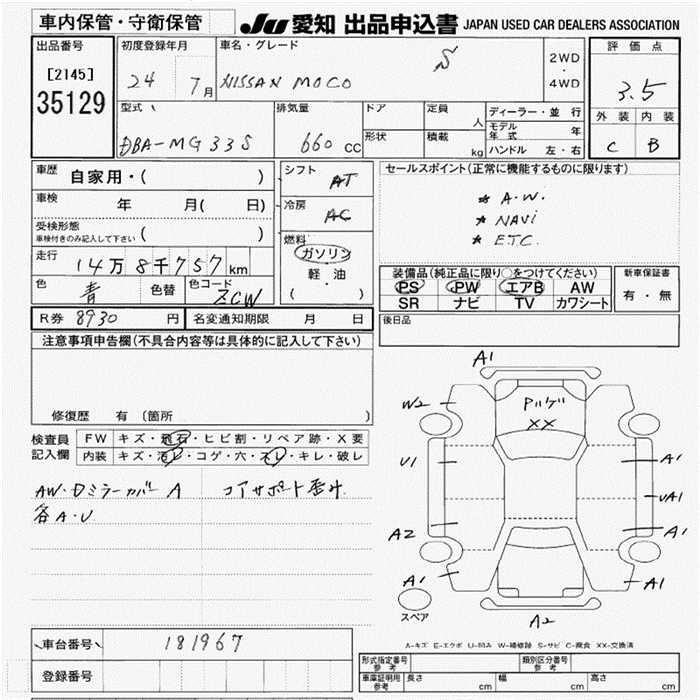 車内保管・守衛保管
JU 愛知 出品申込書 JAPAN USED CAR DEALERS ASSOCIATION
出品番号
[2145]
35129
初度登録年月
24 7月
車名・グレード
NISSAN MOCO S
2WD
・
4WD
評価点
3.5
外装 内装
C B
型式
DBA-MG33S
排気量
660 cc
ドア
形状
定員 人
積載 kg
ディーラー・並行
モデル年式 年
ハンドル 左・右
車歴
自家用・( )
車検 年 月( 日)
受検形態
車検付きのみ記入して下さい ( )
走行 14万8千757km
色 青 色替 色コード ZCW
シフト AT
冷房 AC
燃料
ガソリン
軽・油
( )
セールスポイント(正常に機能するものに限ります)
* A.W.
* NAVi
* ETC.
装備品(純正品に限り○をつけてください)
PS PW エアB AW
SR ナビ TV カワシート
新車保証書
有・無
R券 8930 円 名変通知期限 月 日
後日品
注意事項申告欄(不具合内容等は具体的に記入して下さい)
修復歴 有 (箇所 )
検査員記入欄
FW キズ・飛石・ヒビ割・リペア跡・X要
内装 キズ・汚レ・コゲ・穴・スレ・キレ・破レ
AW・Dミラーカバー A コアサポート歪み
各A・U
A1
W2
Pハゲ
XX
U1
A1
UA1
A2
A1
A1
A1
A2
スペア
A-キズ E-エクボ U-凹み W-補修跡 S-サビ C-腐食 XX-交換済
車台番号 181967
登録番号
形式指定番号 参考
類別区分番号 参考
車庫証明用 参考 長さ cm 幅 cm 高さ cm